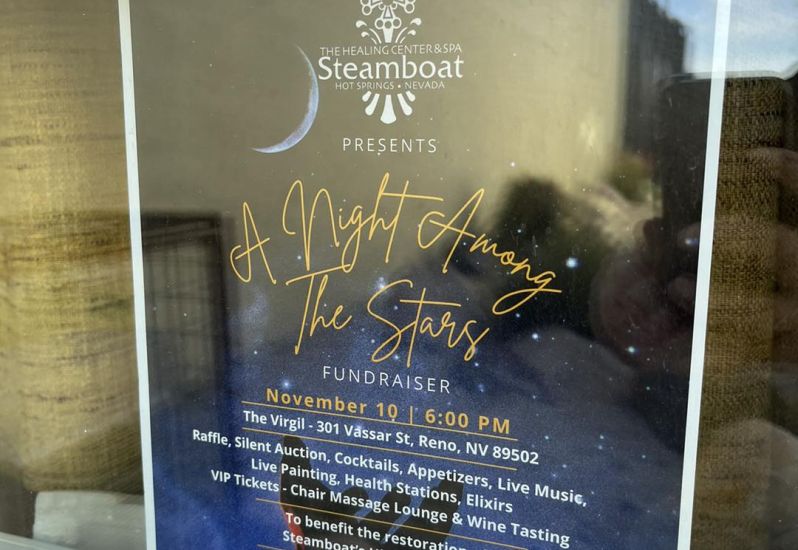 THE HEALING CENTER & SPA
Steamboat
HOT SPRINGS • NEVADA
PRESENTS
A Night Among
The Stars
FUNDRAISER
November 10 | 6:00 PM
The Virgil - 301 Vassar St, Reno, NV 89502
Raffle, Silent Auction, Cocktails, Appetizers, Live Music,
Live Painting, Health Stations, Elixirs
VIP Tickets - Chair Massage Lounge & Wine Tasting
To benefit the restoration
Steamboat's